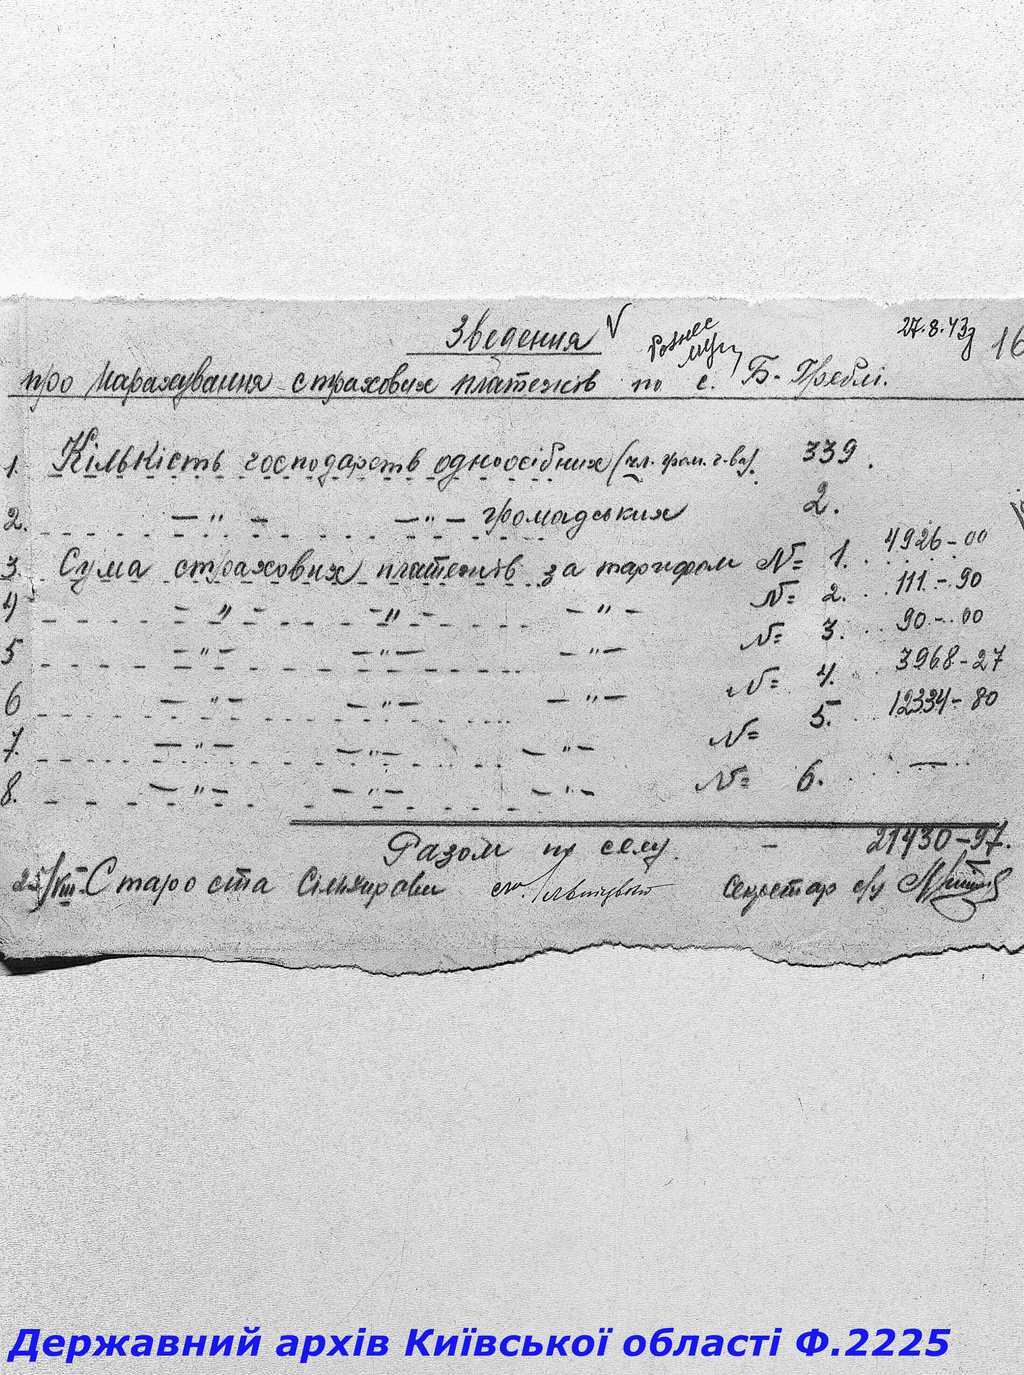 Зведення
27.8.43 16
про нарахування страхових платежів по с. Б-Греблі.
1. Кількість господарств одноосібних (чл. гром. г-ва). 339.
2. — " — — " — громадських 2.
3. Сума страхових платежів за тарифом № 1. 4926-00
4 — " — — " — — " — № 2. 111.-90
5 — " — — " — — " — № 3. 90-00
6 — " — — " — — " — № 4. 3968-27
7. — " — — " — — " — № 5. 12334-80
8. — " — — " — — " — № 6. —
Разом по селу. — 21430-97.
Староста Сільуправи Секретар с/у
Державний архів Київської області Ф.2225